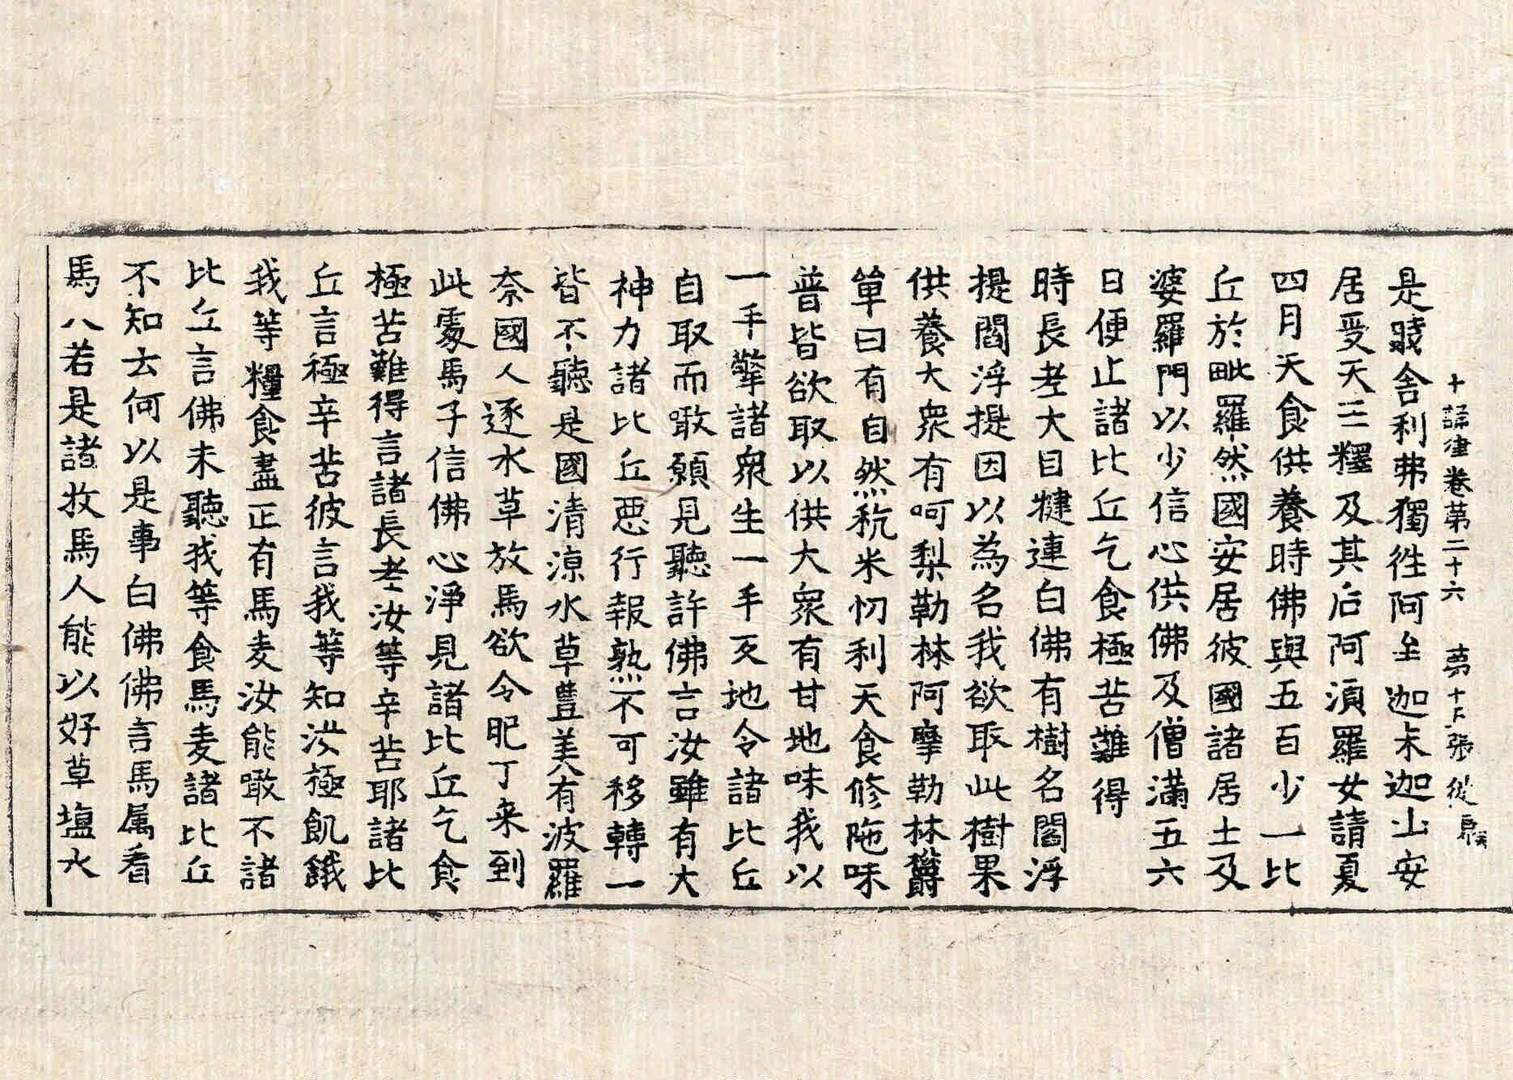 十誦律卷第二十六　第十下張　從
是時舍利弗獨往阿牟迦末迦山安
居受天王釋及其后阿湏羅女請夏
四月天食供養時佛與五百少一比
丘於毗羅然國安居彼國諸居士及
婆羅門以少信心供佛及僧滿五六
日便止諸比丘乞食極苦難得
時長老大目揵連白佛有樹名閻浮
提閻浮提因以為名我欲取此樹果
供養大衆有呵梨勒林阿摩勒林欝
單曰有自然秔米忉利天食修陁味
普皆欲取以供大衆有甘地味我以
一手擎諸衆生一手反地令諸比丘
自取而噉願見聽許佛言汝雖有大
神力諸比丘惡行報熟不可移轉一
皆不聽是國清涼水草豊美有波羅
奈國人逐水草放馬欲令肥丁来到
此處馬子信佛心淨見諸比丘乞食
極苦難得言諸長老汝等辛苦耶諸比
丘言極辛苦彼言我等知汝極飢餓
我等糧食盡正有馬麦汝能噉不諸
比丘言佛未聽我等食馬麦諸比丘
不知云何以是事白佛佛言馬属看
馬人若是諸牧馬人能以好草塩水